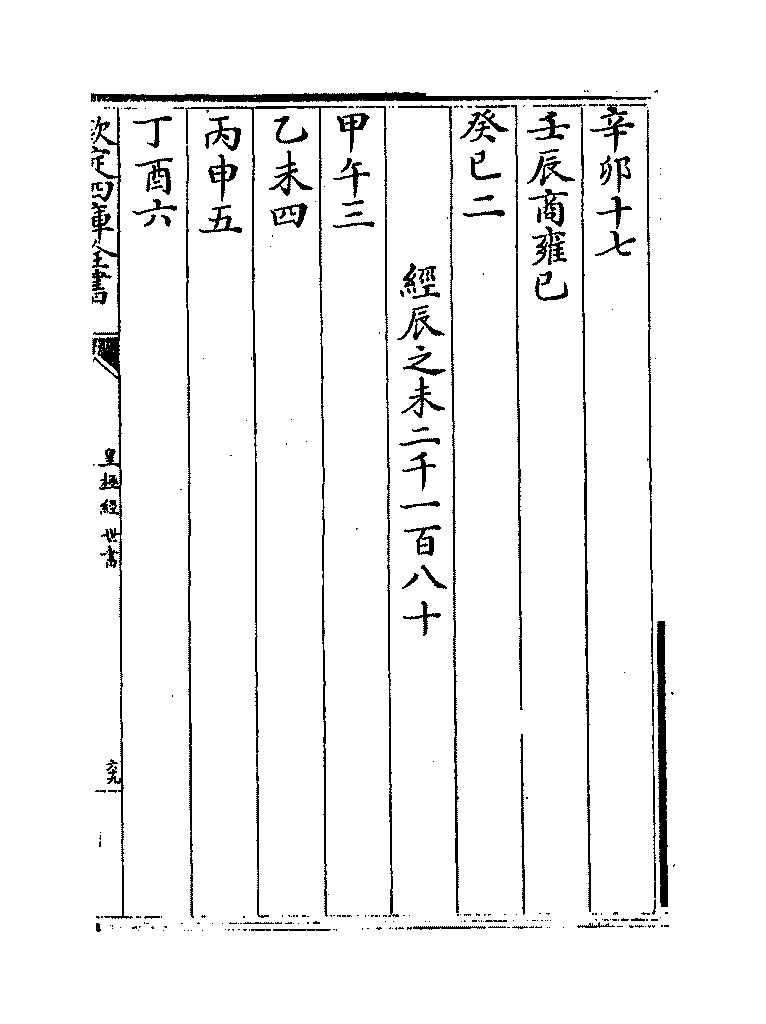 辛卯十七
壬辰商雍已
癸巳二
經辰之未二千一百八十
甲午三
乙未四
丙申五
丁酉六
欽定四庫全書
皇極經世書
六九